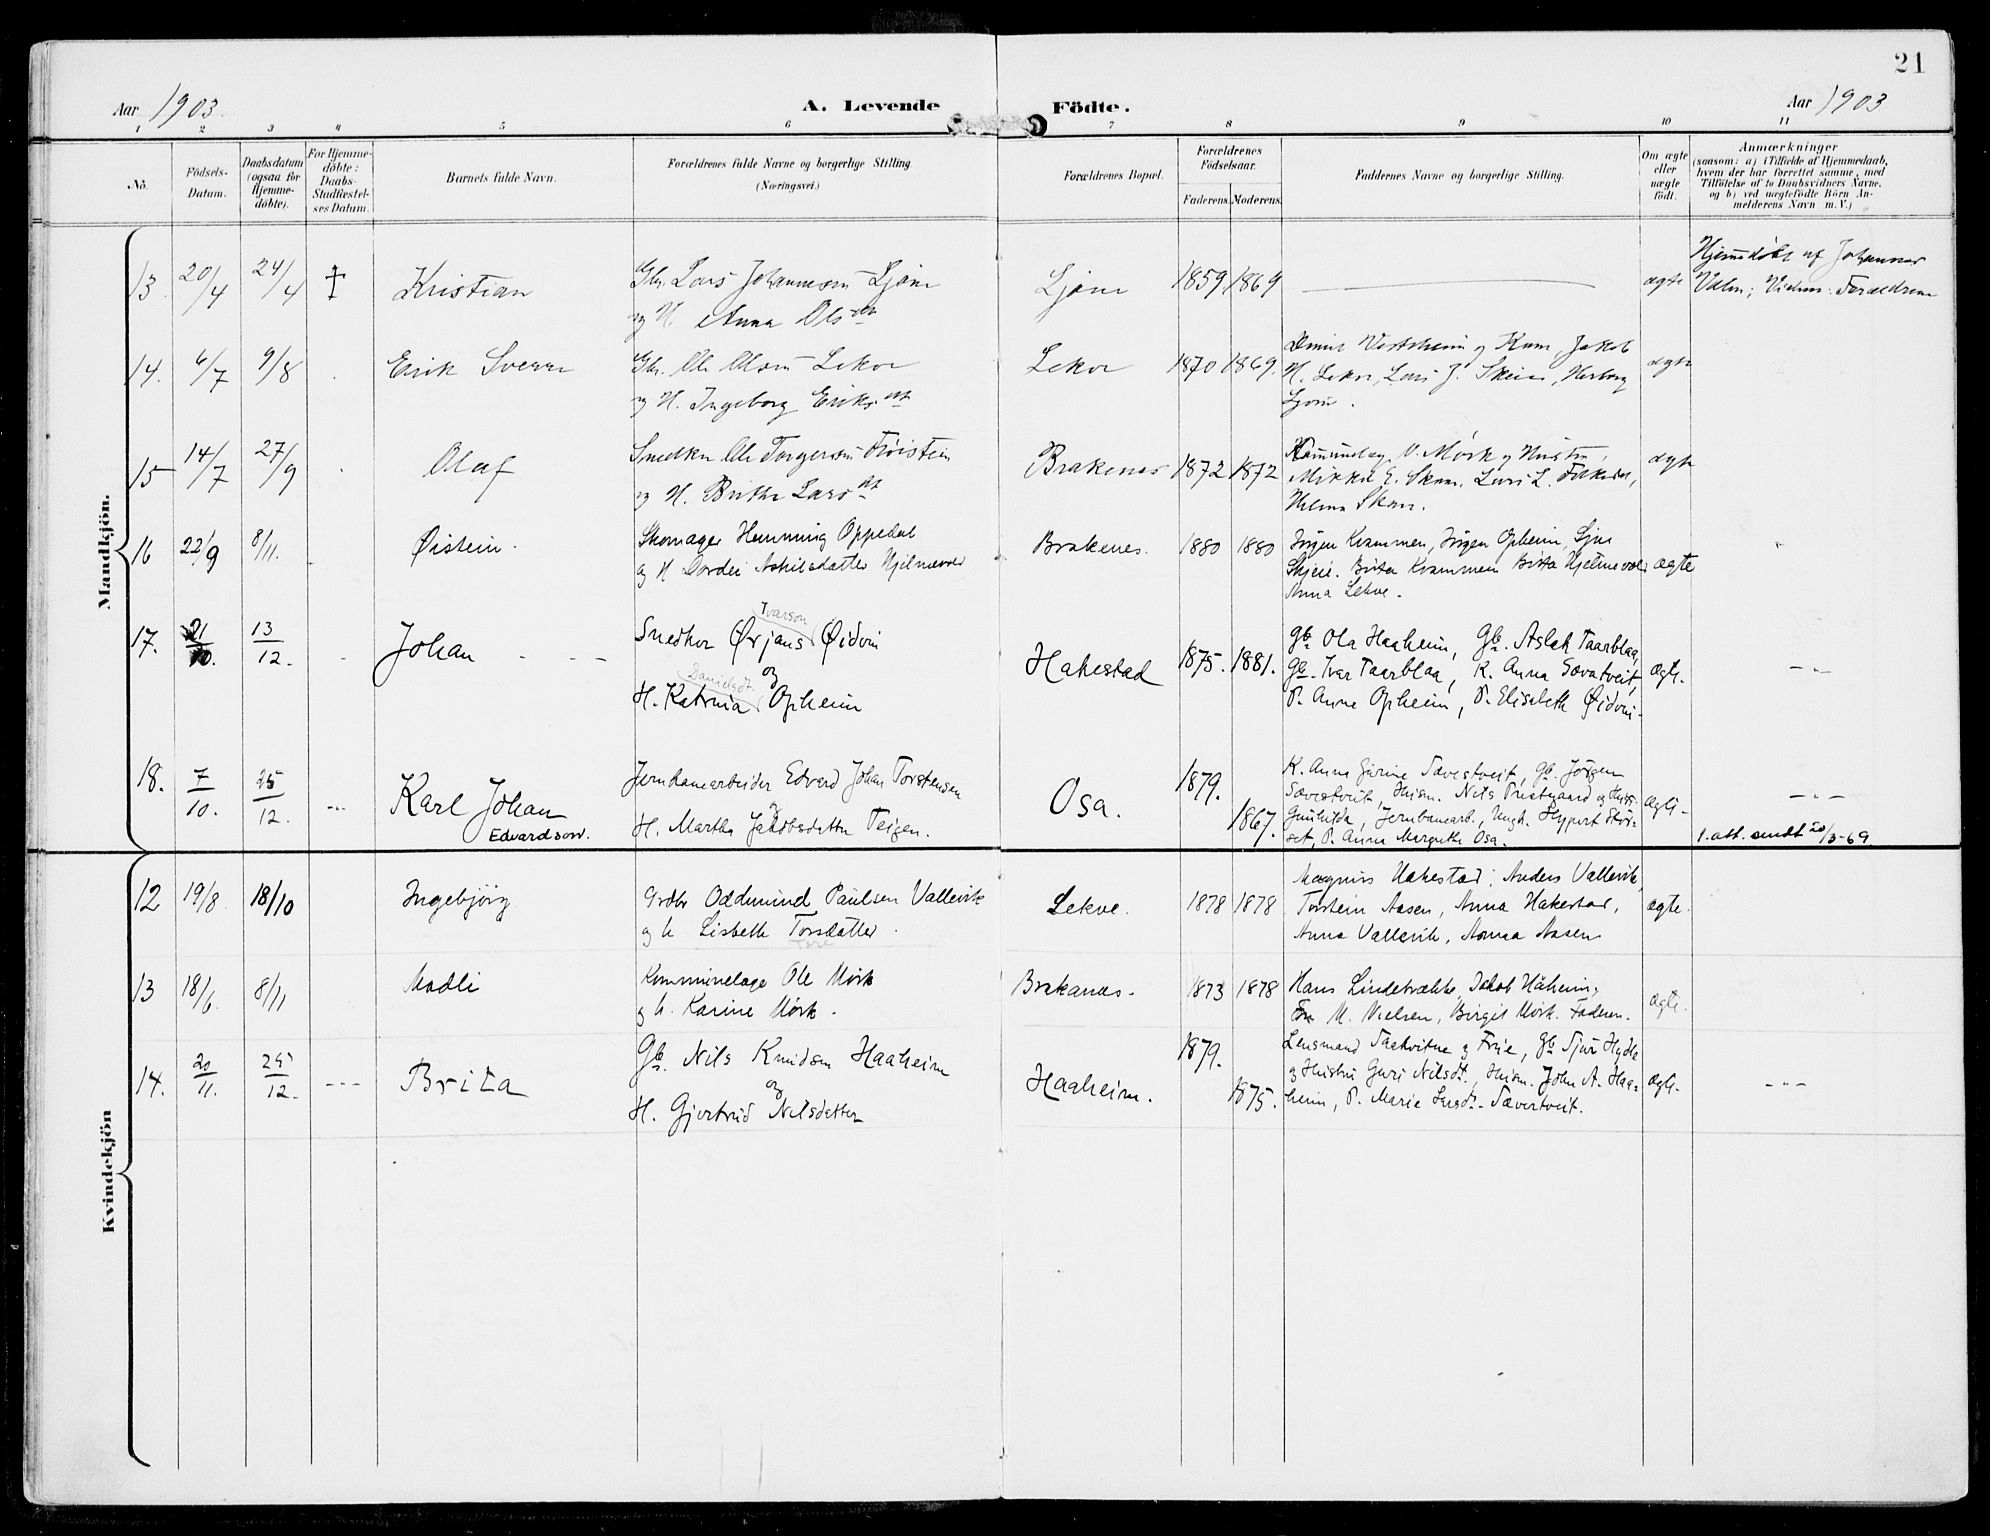 21
Aar 1903.
A. Levende Födte.
Aar 1903
1 2 3 4 5 6 7 8 9 10 11
No.
Födsels-
Datum.
Daabsdatum
(ogsaa for
Hjemme-
döbte).
For Hjemme-
döbte:
Daabs-
Stadfæstel-
ses Datum.
Barnets fulde Navn.
Forældrenes fulde Navne og borgerlige Stilling.
(Næringsvei.)
Forældrenes Bopæl.
Forældrenes
Födselsaar.
Faderens. Moderens.
Faddernes Navne og borgerlige Stilling.
Om ægte
eller
uægte
födt.
Anmærkninger
(saasom: a) i Tilfælde af Hjemmedaab,
hvem der har forrettet samme, med
Tilföielse af to Daabsvidners Navne,
og b) ved uægtefödte Börn An-
melderens Navn m. V.)
Mandkjön.
13. 20/4 24/4 † Kristian
Gbr. Lars Johannessøn Ljøne
og H. Anna Olsdtr
Ljøne 1859 1869 ægte
Hjemmedøbt af Johannes
; Vidner: Forældrene
14. 6/7 9/8 Erik Sverre
Gbr. Ole Olsøn Lekve
og H. Ingeborg Eriksdtr
Lekve 1870 1869.
Vestrheim og Kone, Jakob
H. Lekve, Lars J. Skeie, Herborg
Ljøne.
ægte
15 14/7 27/9 Olaf
Snedker Ole Torgersøn Trøistein
og H. Britha Larsdtr
Brakenes 1872 1872
O. Mørk og Hustru,
Mikkel E. Skaar. Lars L.
Skaar.
ægte
16 22/9 8/11. Øistein.
Skomager Hemming Oppedal
og H Dordei Askilsdatter Hjelmevold
Brakenes. 1880 1880
Jørgen Kvammen, Jørgen Opheim,
Skjeie. Brita Kvammen Britta Hjelmevold
Anna Lekve.
ægte
17. 21/10. 13/12. Johan
Ivarson
Snedker Ørjans Øidvin
og
Danielsdt.
H. Katrina Opheim
Hakestad 1875. 1881.
Gb. Ola Haaheim, Gb. Aslak Taarblaa,
Gb. Ivar Taarblaa, K. Anna Sævatveit,
P. Anna Opheim, P. Elisabeth Øidvin.
ægt.
18. 7/10. 25/12. Karl Johan
Edvardson.
Jernbanearbeider Edvard Johan Torstensen
og
H. Martha Jakobsdatter Teigen.
Osa. 1879. 1867.
K. Anna Sævertveit, Gb. Jørgen
Sævertveit, Husm. Nils Prestegaard og Hustr.
Gunhilda, Jernbanearb., Ungk.
P. Anna Margrethe Osa.
ægte
1. att. sendt 20/3-69
Kvindekjön
12 19/8. 18/10 Ingebjörg
Grdbr Oddmund Paulsen Vallevik
og h Lisbeth Torsdatter.
Tore
Lekve. 1878 1878
Magnus Hakestad, Anders Vallevik,
Torstein Aasen, Anna Hakestad,
Anna Vallevik, Anna Aasen
ægte.
13 18/6. 8/11 Madli
Kommunelæge Ole Mørk
og h. Karine Mørk.
Brakanæs. 1873 1878
Hans Lindebrække, Jakob Håheim,
Fru M. Nielsen, Birgit Mørk. Faderen.
ægte.
14. 20/11. 25/12.
Brita
Gb. Nils Knudsen Haaheim
og
H. Gjertrud Nilsdatter
Haaheim. 1879. 1875.
Lensmand Taakvitne og Frue, Gb. Sjur Hylle
og Hustru Guri Nilsdt., Husm. John A. Haa-
heim, P. Marie Larsdt. Sævertveit.
ægt.